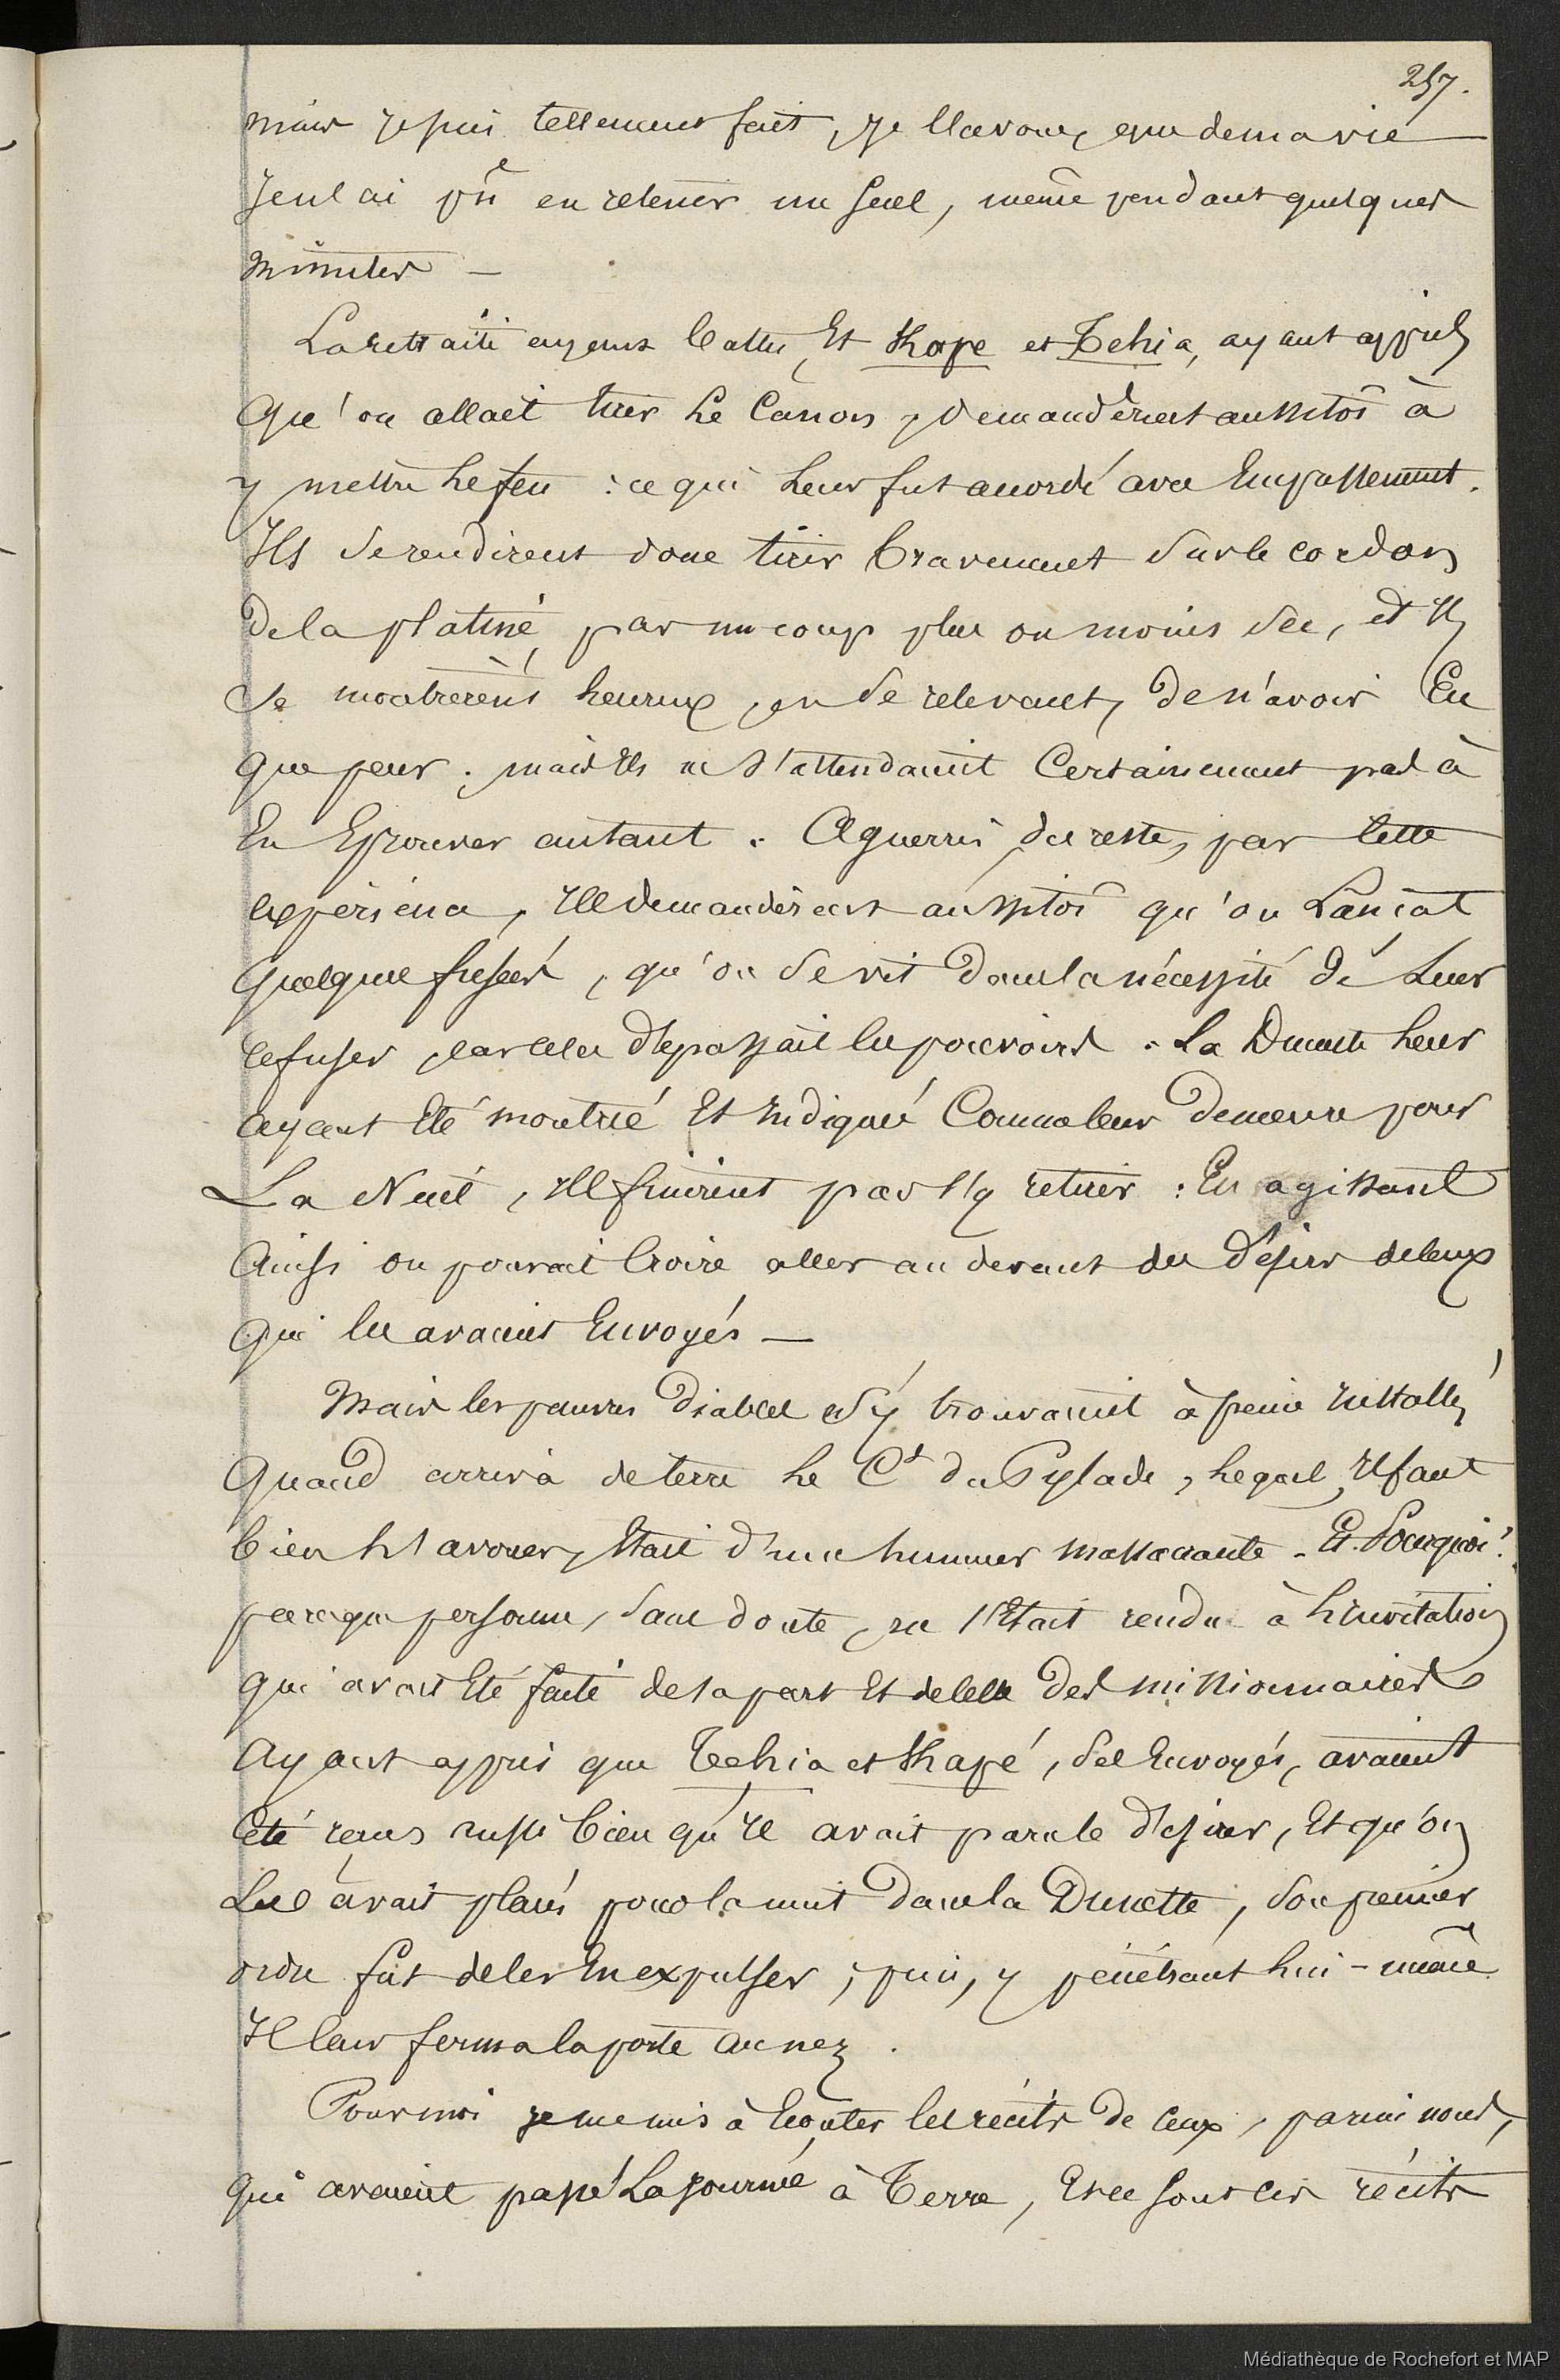 257.
mais je suis tellement fait, je l'avoue, que de ma vie
Je n'ai pû en retenir un seul, même pendant quelques
minutes —
La retraite ayant battu, Et Khape et Tehia, ayant appris
Qu'on allait tirer Le Canon, demandèrent aussitôt à
y mettre le feu : ce qui leur fut accordé avec Empressement.
Ils se rendirent donc tirer bravement sur le cordon
De la platine, par un coup plus ou moins sec, et Ils
se montrèrent heureux, en se relevant, de n'avoir Eu
que peur. mais Ils ne s'attendaient Certainement pas à
En Eprouver autant. Aguerris du reste, par Cette
Expérience, Ils demandèrent aussitôt qu'on Lançat
quelques fusées, qu'on se vit dans la nécessité de Leur
refuser, car cela dépassait les pouvoirs. La Dunette leur
ayant Eté montrée Et Indiquée Comme leur demeure pour
La Nuit, Ils finirent par s'y retirer : En agissant
Ainsi on pouvait Croire aller au devant du désir de Ceux
Qui les avaient Envoyés —
Mais les pauvres Diables s'y trouvaient à peine Installés,
Quand arriva de terre le Ct du Pylade, lequel, Il faut
bien l'avouer, Etait d'une humeur massacrante. Et Pourquoi?
parce que personne, sans doute, ne s'Etait rendu à l'Invitation
qui avait Eté faite de sa part Et de celle des missionnaires
Ayant appris que Tehia et Khapé, ses Envoyés, avaient
Eté reçus aussi bien qu'Il avait paru le désirer, Et qu'on
Les avait placés pour la nuit dans la Dunette, son premier
ordre fut de les En expulser ; puis, y pénétrant lui-même
Il leur ferma la porte au nez.
Pour moi je me mis à Ecouter les récits de Ceux, parmi nous,
Qui avaient passé La Journée à Terre, Et ce sont ces récits
Médiathèque de Rochefort et MAP